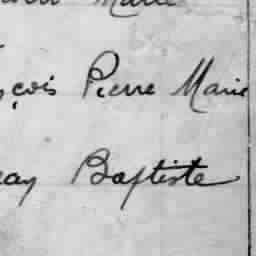 Marie
çois Pierre Marie
Baptiste